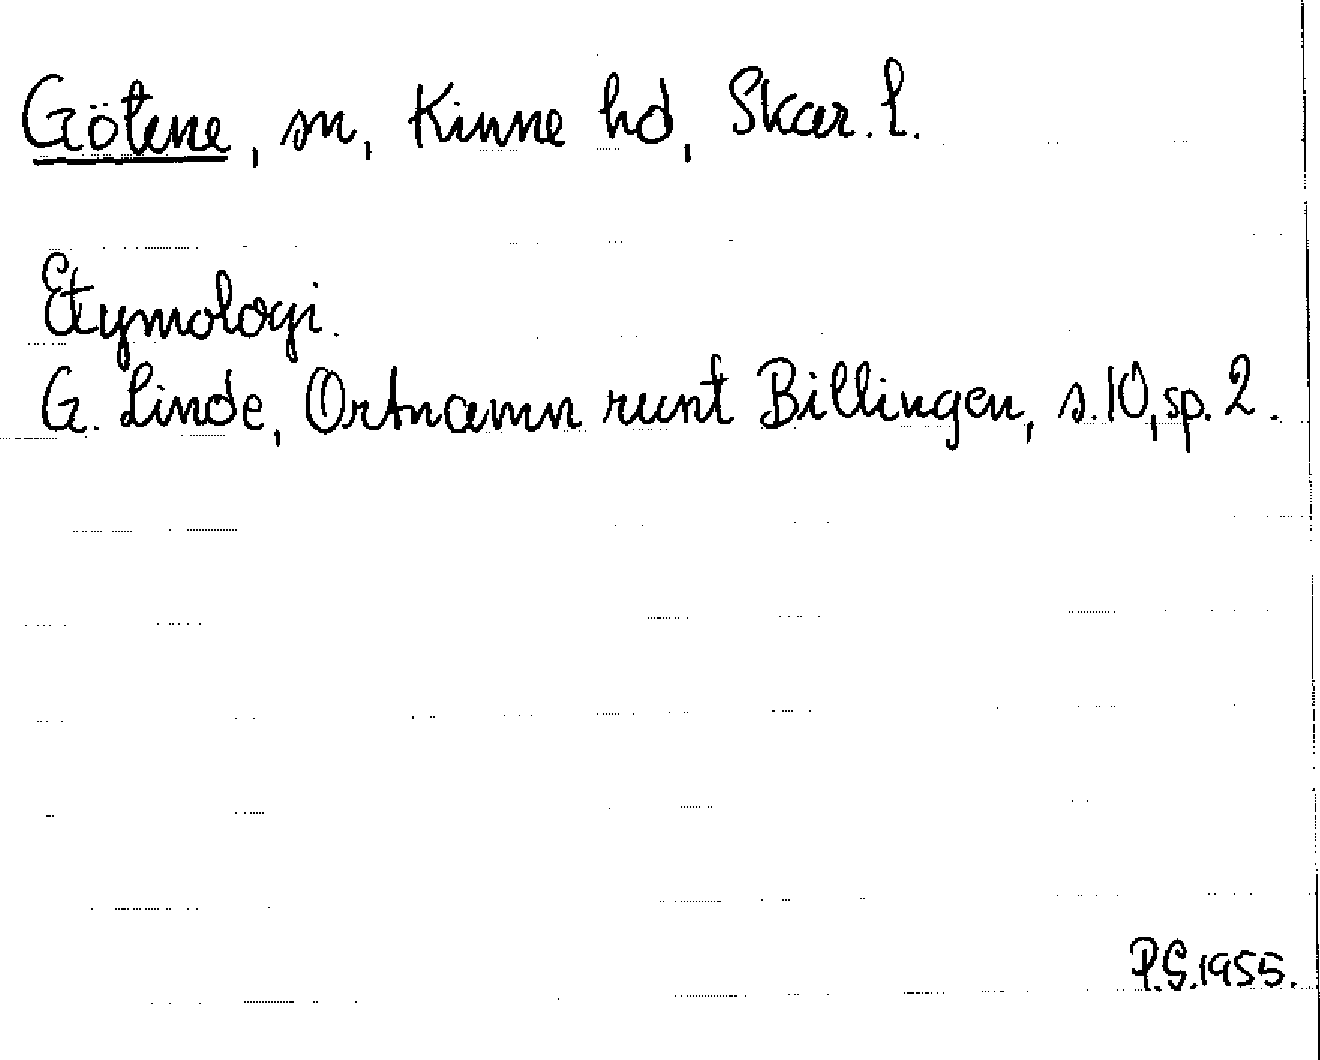 Götene, sn, Kinne hd, Skar. l.
Etymologi.
G. Linde, Ortnamn runt Billingen, s. 10, sp. 2.
P.G. 1955.